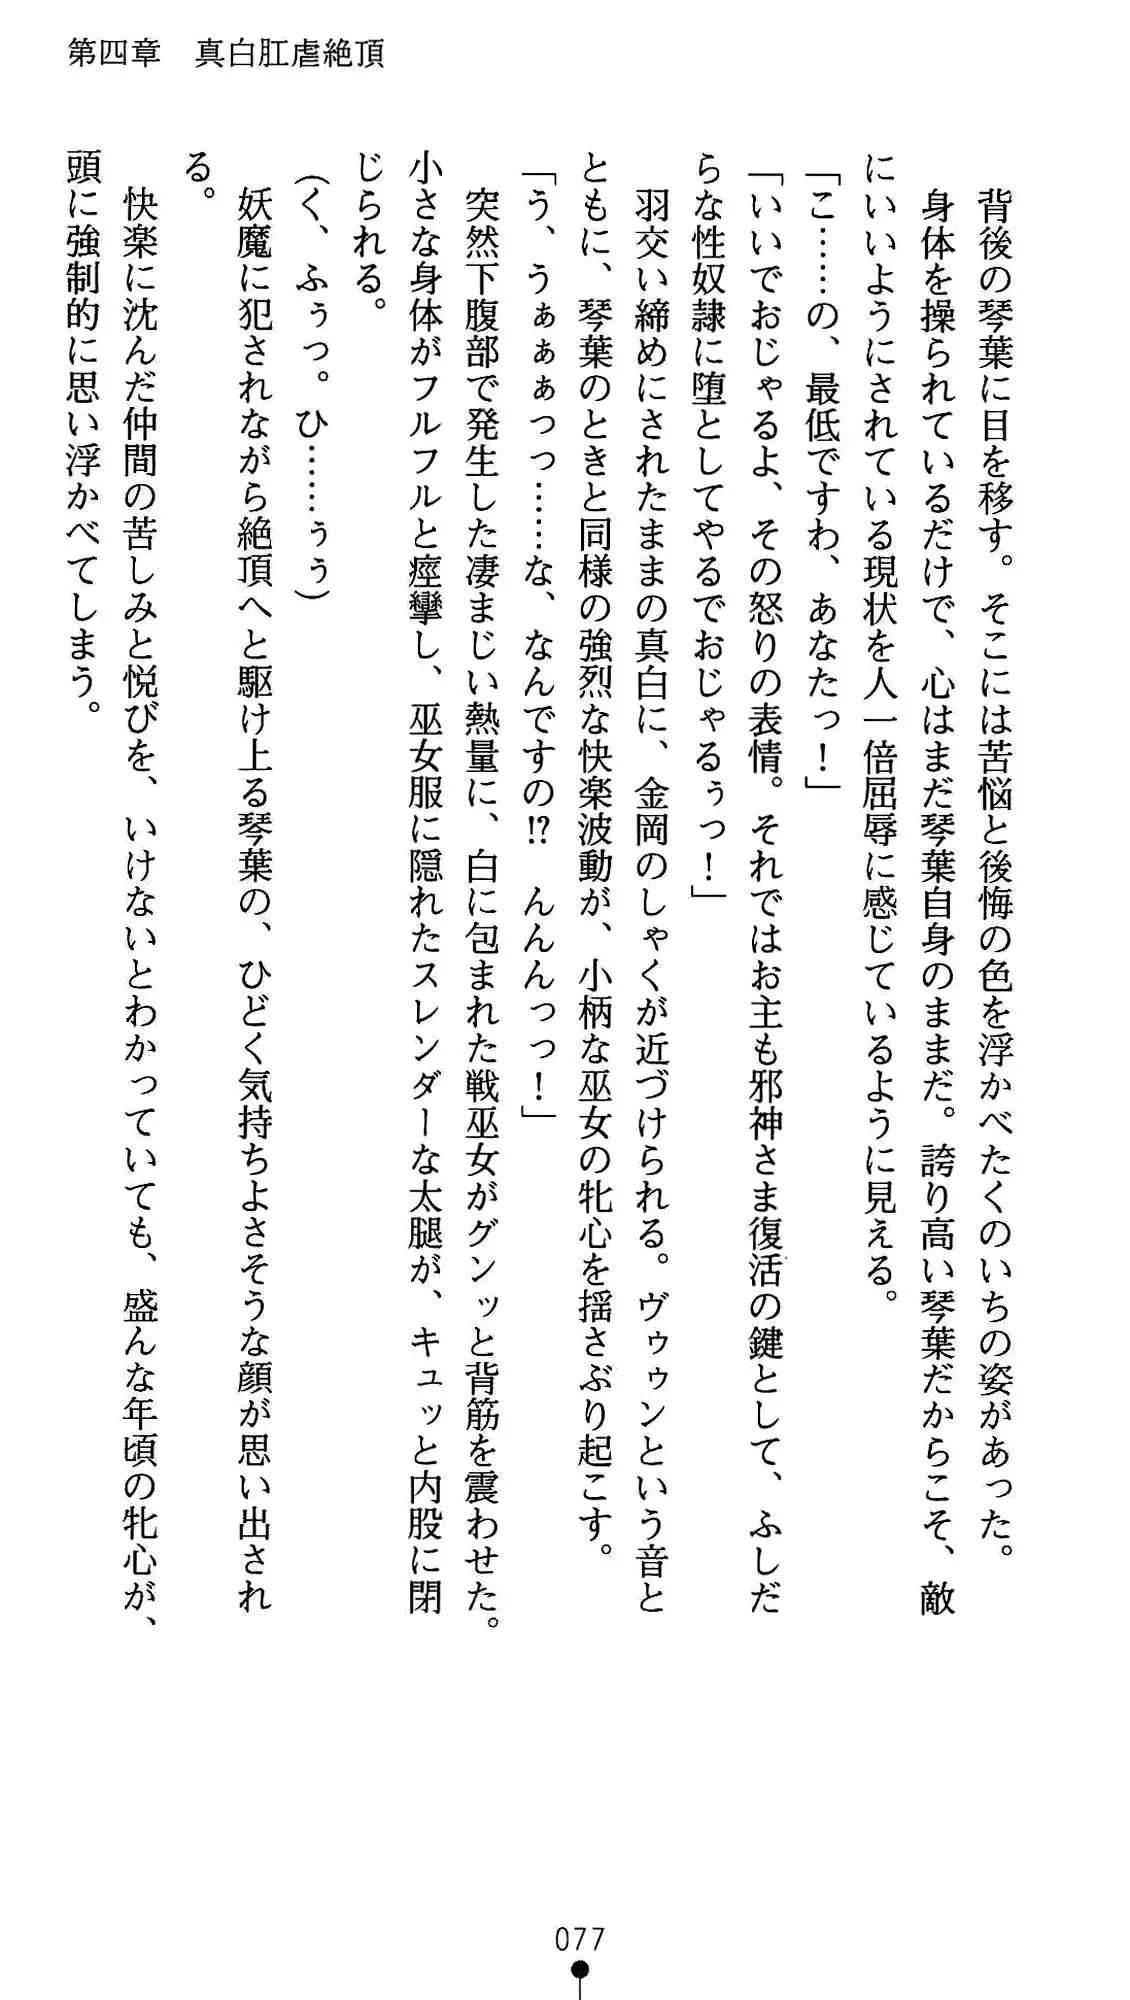 第四章　真白肛虐絶頂
　背後の琴葉に目を移す。そこには苦悩と後悔の色を浮かべたくのいちの姿があった。
　身体を操られているだけで、心はまだ琴葉自身のままだ。誇り高い琴葉だからこそ、敵
にいいようにされている現状を人一倍屈辱に感じているように見える。
「こ……の、最低ですわ、あなたっ！」
「いいでおじゃるよ、その怒りの表情。それではお主も邪神さま復活の鍵として、ふしだ
らな性奴隷に堕としてやるでおじゃるぅっ！」
　羽交い締めにされたままの真白に、金岡のしゃくが近づけられる。ヴゥゥンという音と
ともに、琴葉のときと同様の強烈な快楽波動が、小柄な巫女の牝心を揺さぶり起こす。
「う、うぁぁぁっっ……な、なんですの!?　んんんっっ！」
　突然下腹部で発生した凄まじい熱量に、白に包まれた戦巫女がグンッと背筋を震わせた。
小さな身体がフルフルと痙攣し、巫女服に隠れたスレンダーな太腿が、キュッと内股に閉
じられる。
（く、ふぅっ。ひ……ぅぅ）
　妖魔に犯されながら絶頂へと駆け上る琴葉の、ひどく気持ちよさそうな顔が思い出され
る。
　快楽に沈んだ仲間の苦しみと悦びを、いけないとわかっていても、盛んな年頃の牝心が、
頭に強制的に思い浮かべてしまう。
077